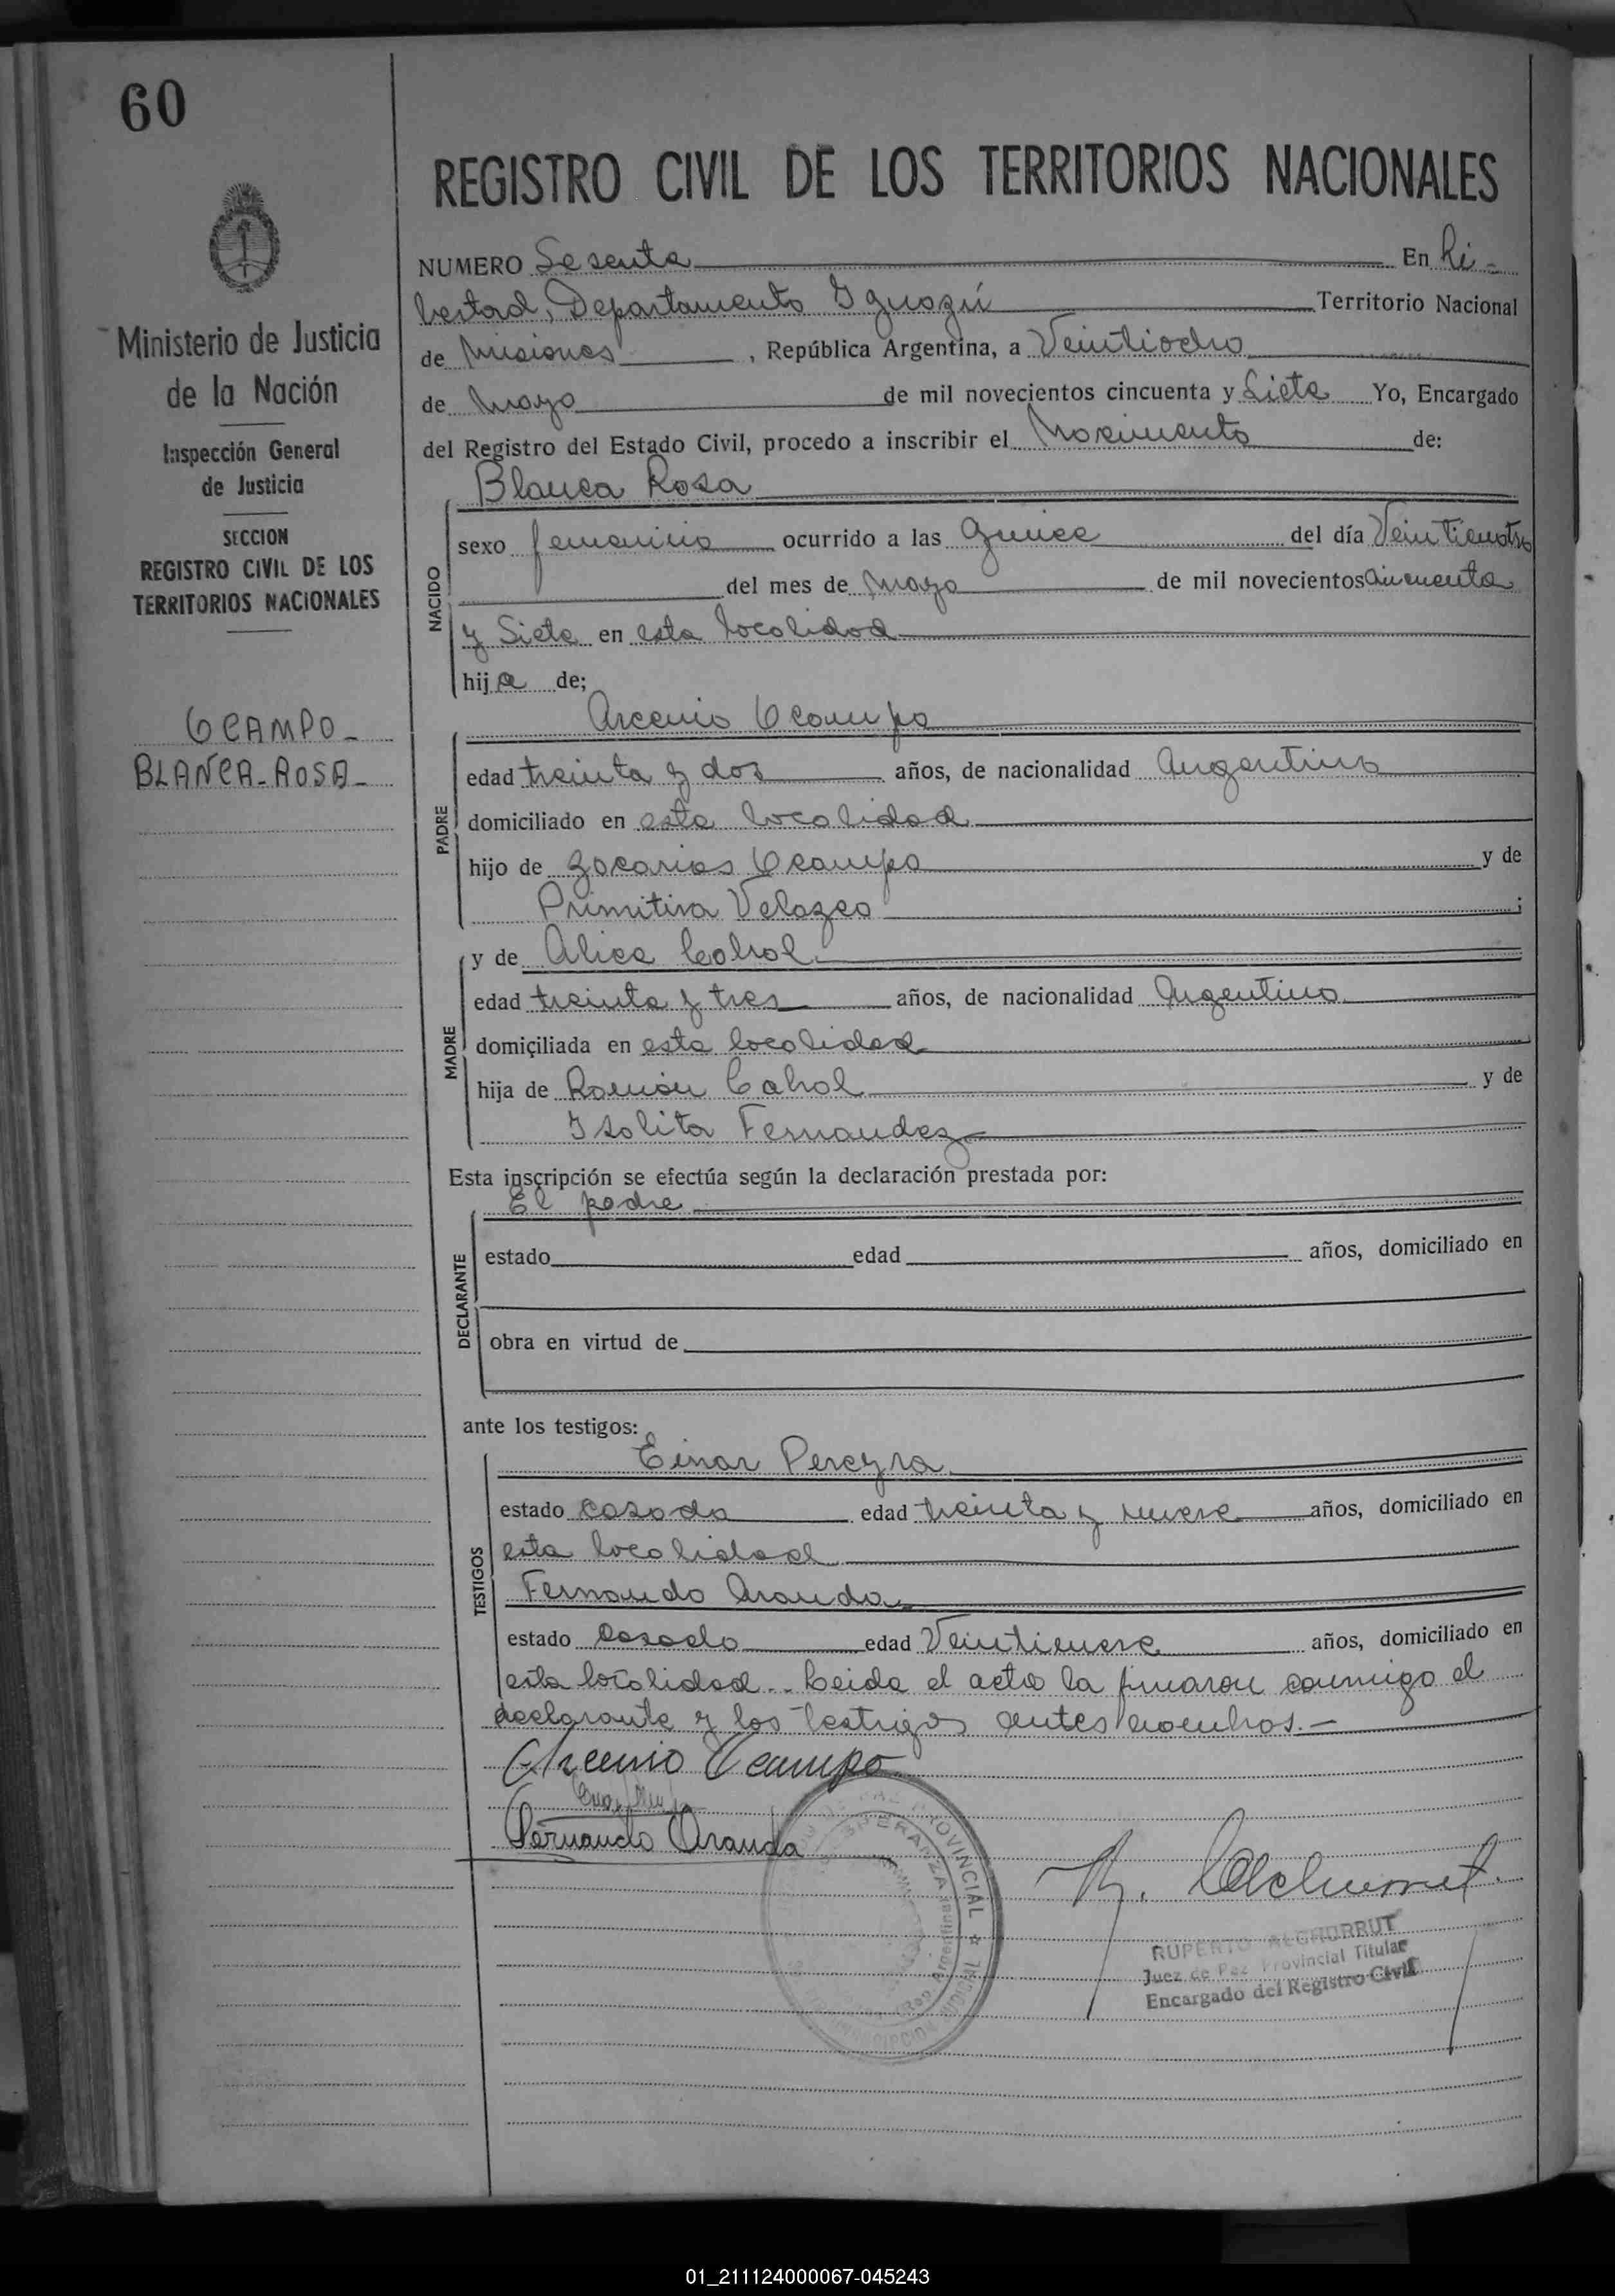 60
REGISTRO CIVIL DE LOS TERRITORIOS NACIONALES
NUMERO Sesenta En Li-
bertad, Departamento Iguazú Territorio Nacional
de Misiones, República Argentina, a Veintiocho
de Mayo de mil novecientos cincuenta y Siete Yo, Encargado
del Registro del Estado Civil, procedo a inscribir el Nacimiento de:
Blanca Rosa
NACIDO
sexo femenino ocurrido a las Quince del día Veinticuatro
del mes de Mayo de mil novecientos Cincuenta
y Siete en esta localidad
hija de;
Arcenio Ocampo
PADRE
edad treinta y dos años, de nacionalidad Argentino
domiciliado en esta localidad
hijo de Zacarias Ocampo y de
Primitiva Velazco ;
MADRE
y de Alica Cabral
edad treinta y tres años, de nacionalidad Argentina
domiciliada en esta localidad
hija de Ramón Cabral y de
Isolita Fernandez
Esta inscripción se efectúa según la declaración prestada por:
El padre
DECLARANTE
estado edad años, domiciliado en
obra en virtud de
ante los testigos:
Einar Pereyra
TESTIGOS
estado casado edad treinta y nueve años, domiciliado en
esta localidad
Fernando Aranda
estado Casado edad Veintinueve años, domiciliado en
esta localidad.- Leida el acta la firmaron conmigo el
declarante y los testigos antes nombros.-
Arcenio Ocampo
Fernando Aranda
Ministerio de Justicia
de la Nación
Inspección General
de Justicia
SECCION
REGISTRO CIVIL DE LOS
TERRITORIOS NACIONALES
OCAMPO-
BLANCA-ROSA-
PROVINCIAL
ESPERANZA
Argentina
RUPERTO ALCHURRUT
Juez de Paz Provincial Titular
Encargado del Registro Civil
01_211124000067-045243